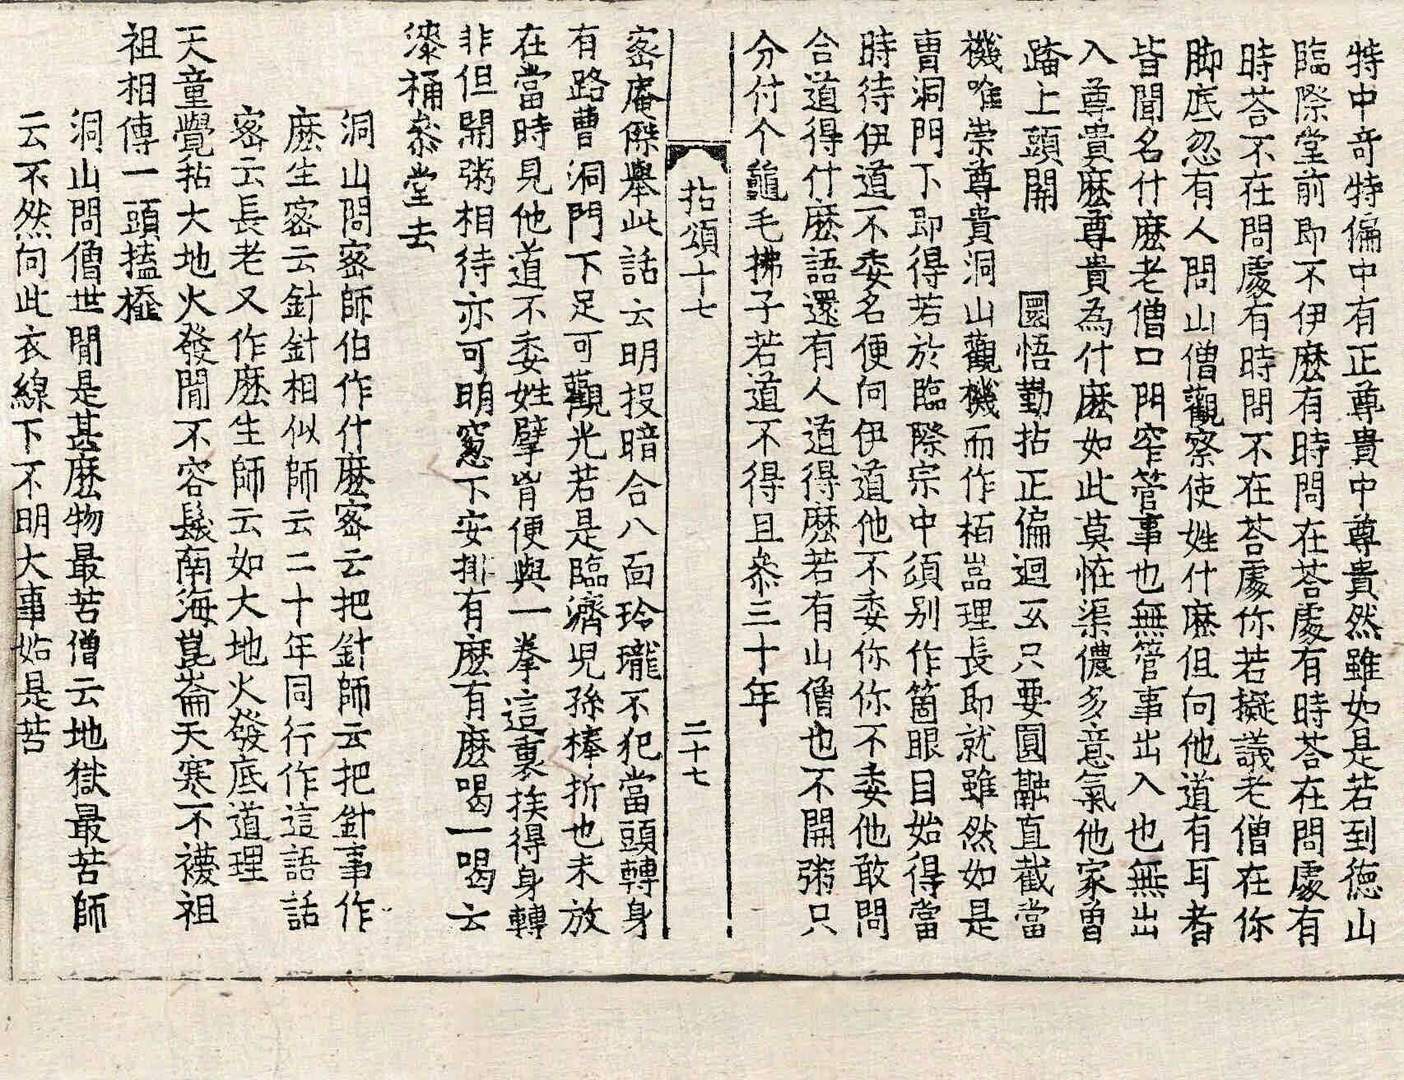 特中竒特偏中有正尊貴中尊貴然雖如是若到德山
臨際堂前即不伊麽有時問在荅䖏有時荅在問䖏有
時荅不在問䖏有時問不在荅䖏你若擬議老僧在你
脚底忽有人問山僧觀察使姓什麽但向他道有耳者
皆聞名什麽老僧口門窄管事也無管事出入也無出
入尊貴麽尊貴為什麽如此莫恠渠儂多意氣他家曽
踏上頭開　圜悟勤拈正偏迴互只要圓融直截當
機唯崇尊貴洞山觀機而作栢嵓理長即就雖然如是
曺洞門下即得若於臨際宗中須别作箇眼目始得當
時待伊道不委名便向伊道他不委你你不委他敢問
合道得什麽語還有人道得麽若有山僧也不開粥只
分付个龜毛拂子若道不得且叅三十年
拈頌十七　二十七
密庵傑舉此話云明投暗合八面玲瓏不犯當頭轉身
有路曹洞門下足可觀光若是臨濟児孫棒折也未放
在當時見他道不委姓擘胷便與一拳這裏挨得身轉
非但開粥相待亦可明窓下安排有麽有麽喝一喝云
漆桶叅堂去
洞山問密師伯作什麽密云把針師云把針事作
麽生密云針針相似師云二十年同行作這語話
密云長老又作麽生師云如大地火發底道理
天童覺拈大地火發間不容髮南海崑崙天寒不襪祖
祖相傳一頭搕𣛴
洞山問僧世間是甚麽物最苦僧云地獄最苦師
云不然向此衣線下不明大事始是苦